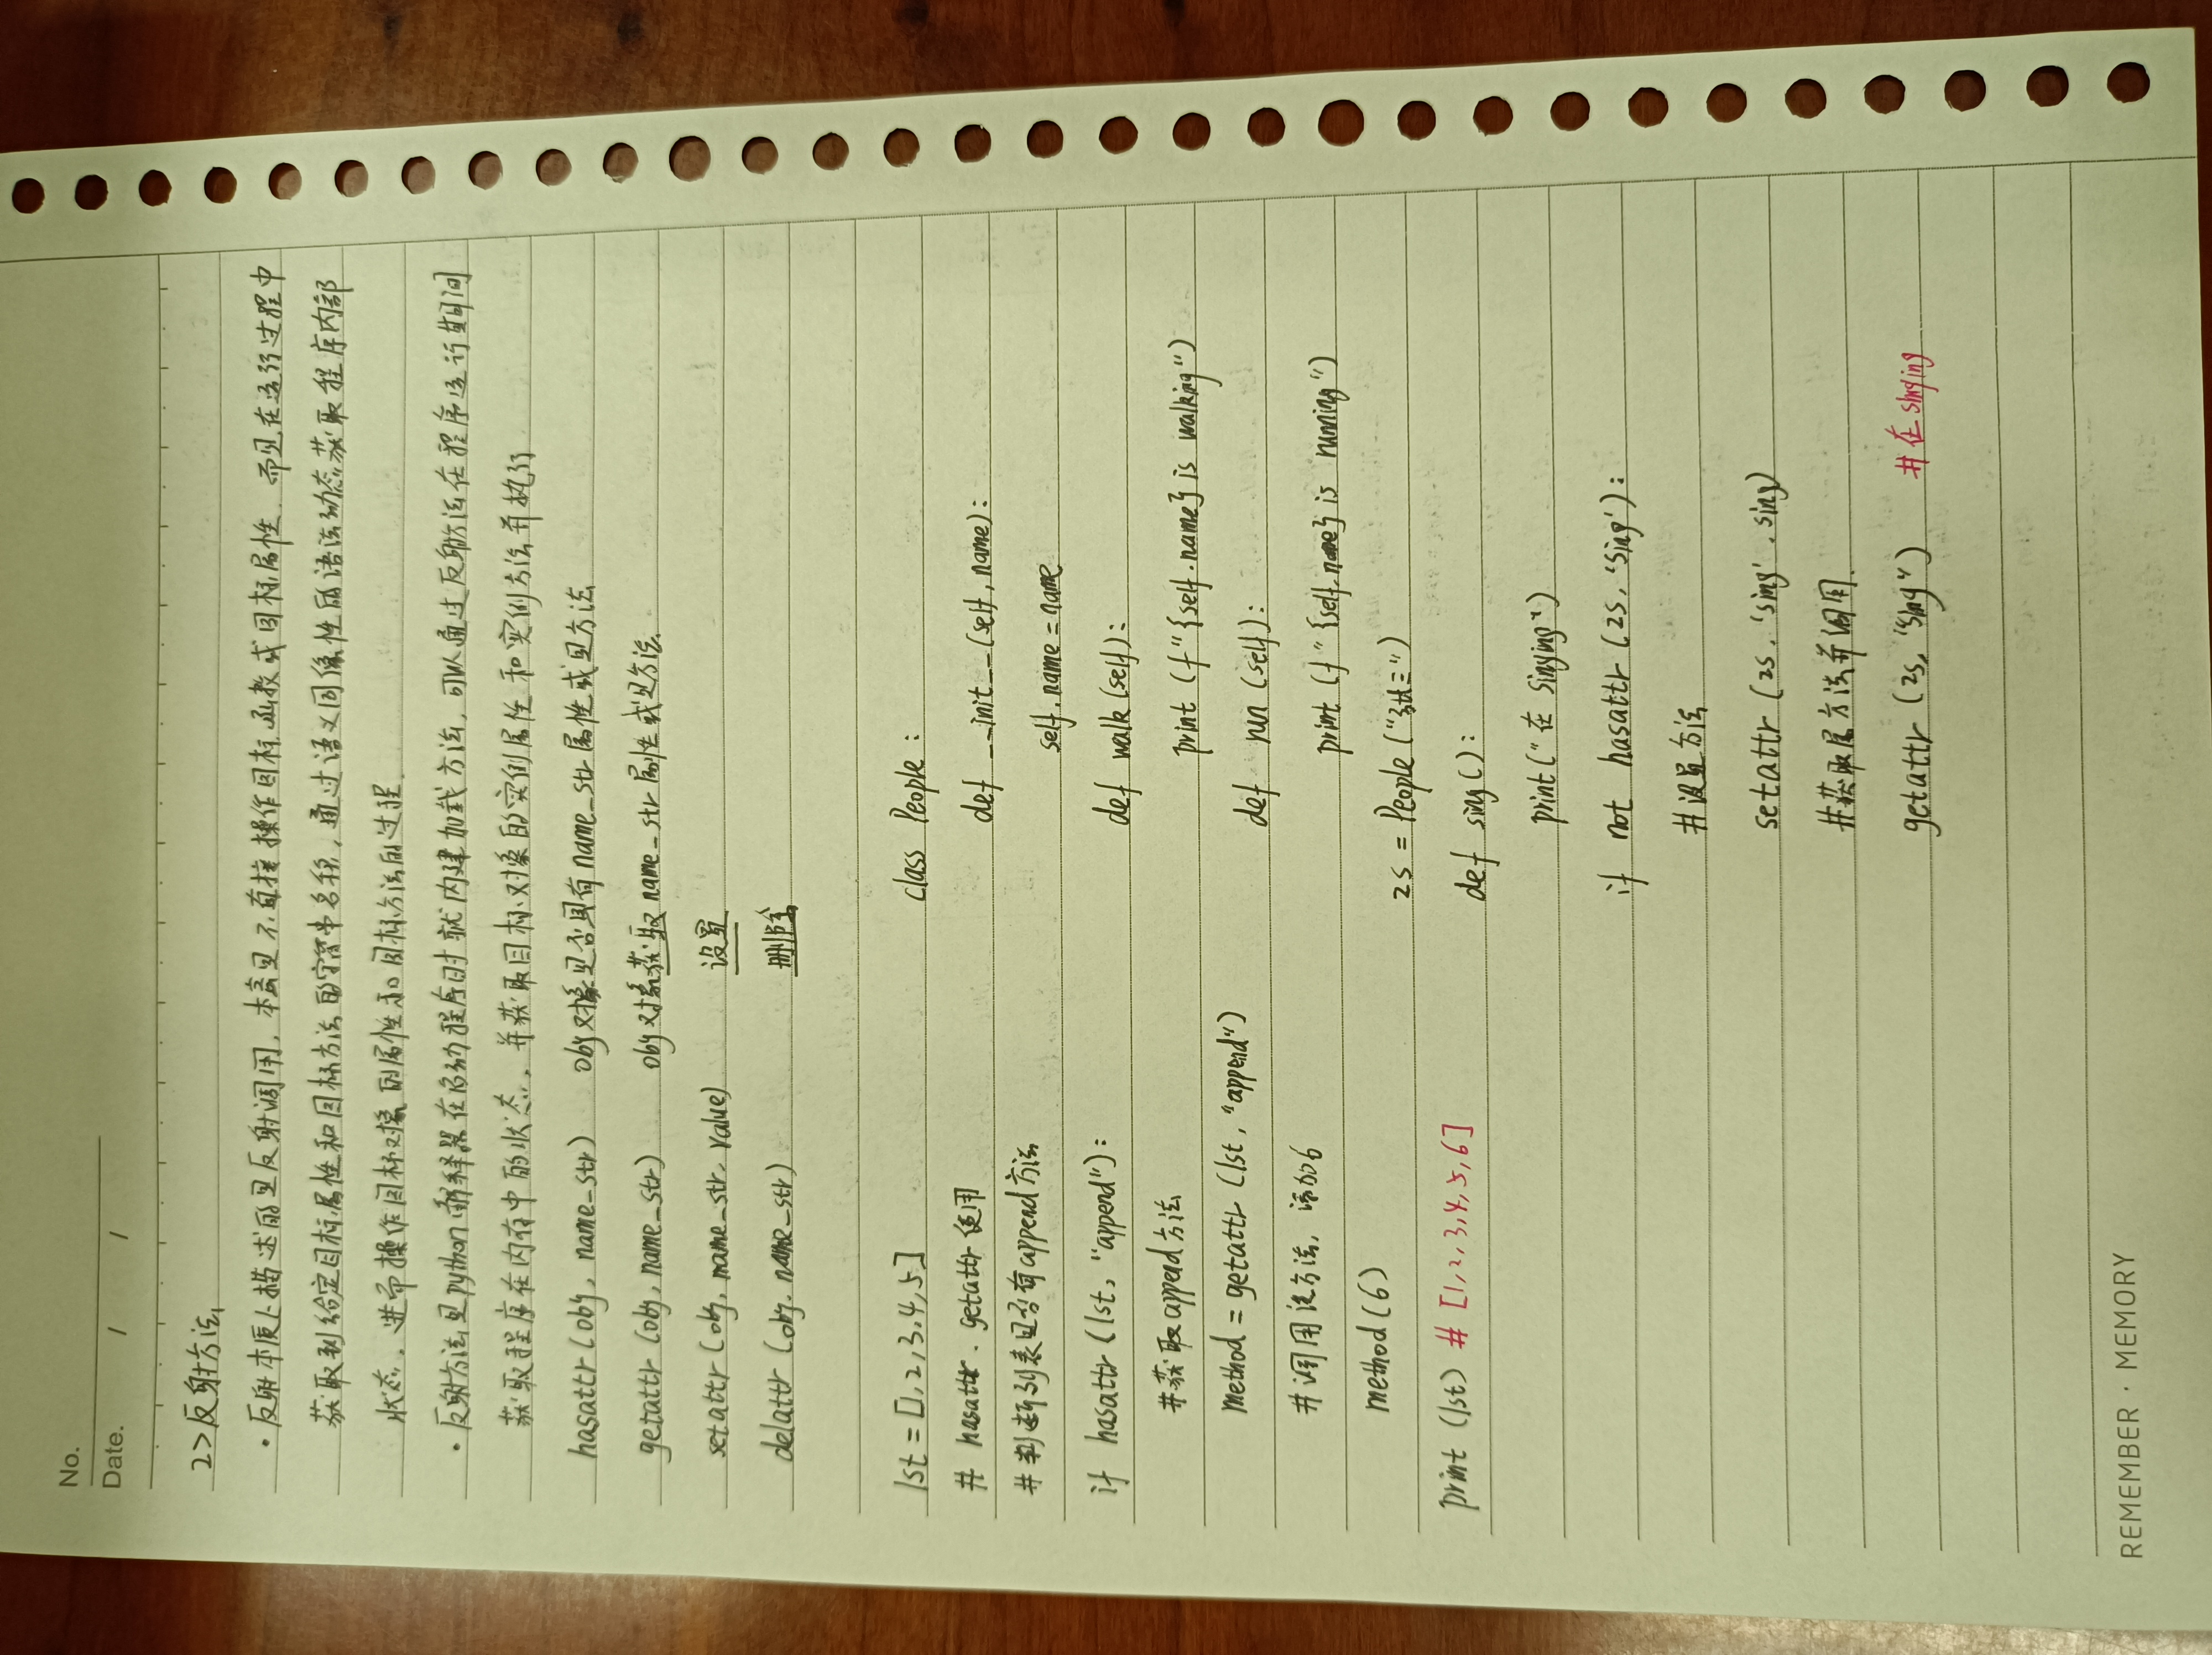 No.
Date. / /
2>反射方法
·反射本质上描述的是反射调用,本意是不直接操作目标函数或目标属性,而是在运行过程中
获取到给定目标属性和目标方法的字符串名称,通过语义同像性的语法动态获取程序内部
状态,进而操作目标对象的属性和目标方法的过程.
·反射方法是python解释器在启动程序时就内建加载方法,可以通过反射方法在程序运行期间
获取程序在内存中的状态,并获取目标对象的实例属性和实例方法并执行
hasattr(obj, name_str) obj对象是否具有name_str属性或是方法
getattr(obj, name_str) obj对象获取name_str属性或是方法.
setattr(obj, name_str, value) 设置
delattr(obj, name_str) 删除
lst = [1,2,3,4,5]
# hasattr、getattr使用
#判断列表是否有append方法
if hasattr(lst, "append"):
#获取append方法
method = getattr(lst, "append")
#调用该方法,添加6
method(6)
print(lst) # [1,2,3,4,5,6]
class People:
def __init__(self, name):
self.name = name
def walk(self):
print(f"{self.name} is walking")
def run(self):
print(f"{self.name} is running")
zs = People("张三")
def sing():
print("在 singing")
if not hasattr(zs, 'sing'):
#设置方法
setattr(zs, 'sing', sing)
#获取属方法并调用.
getattr(zs, "sing") #在singing
REMEMBER · MEMORY